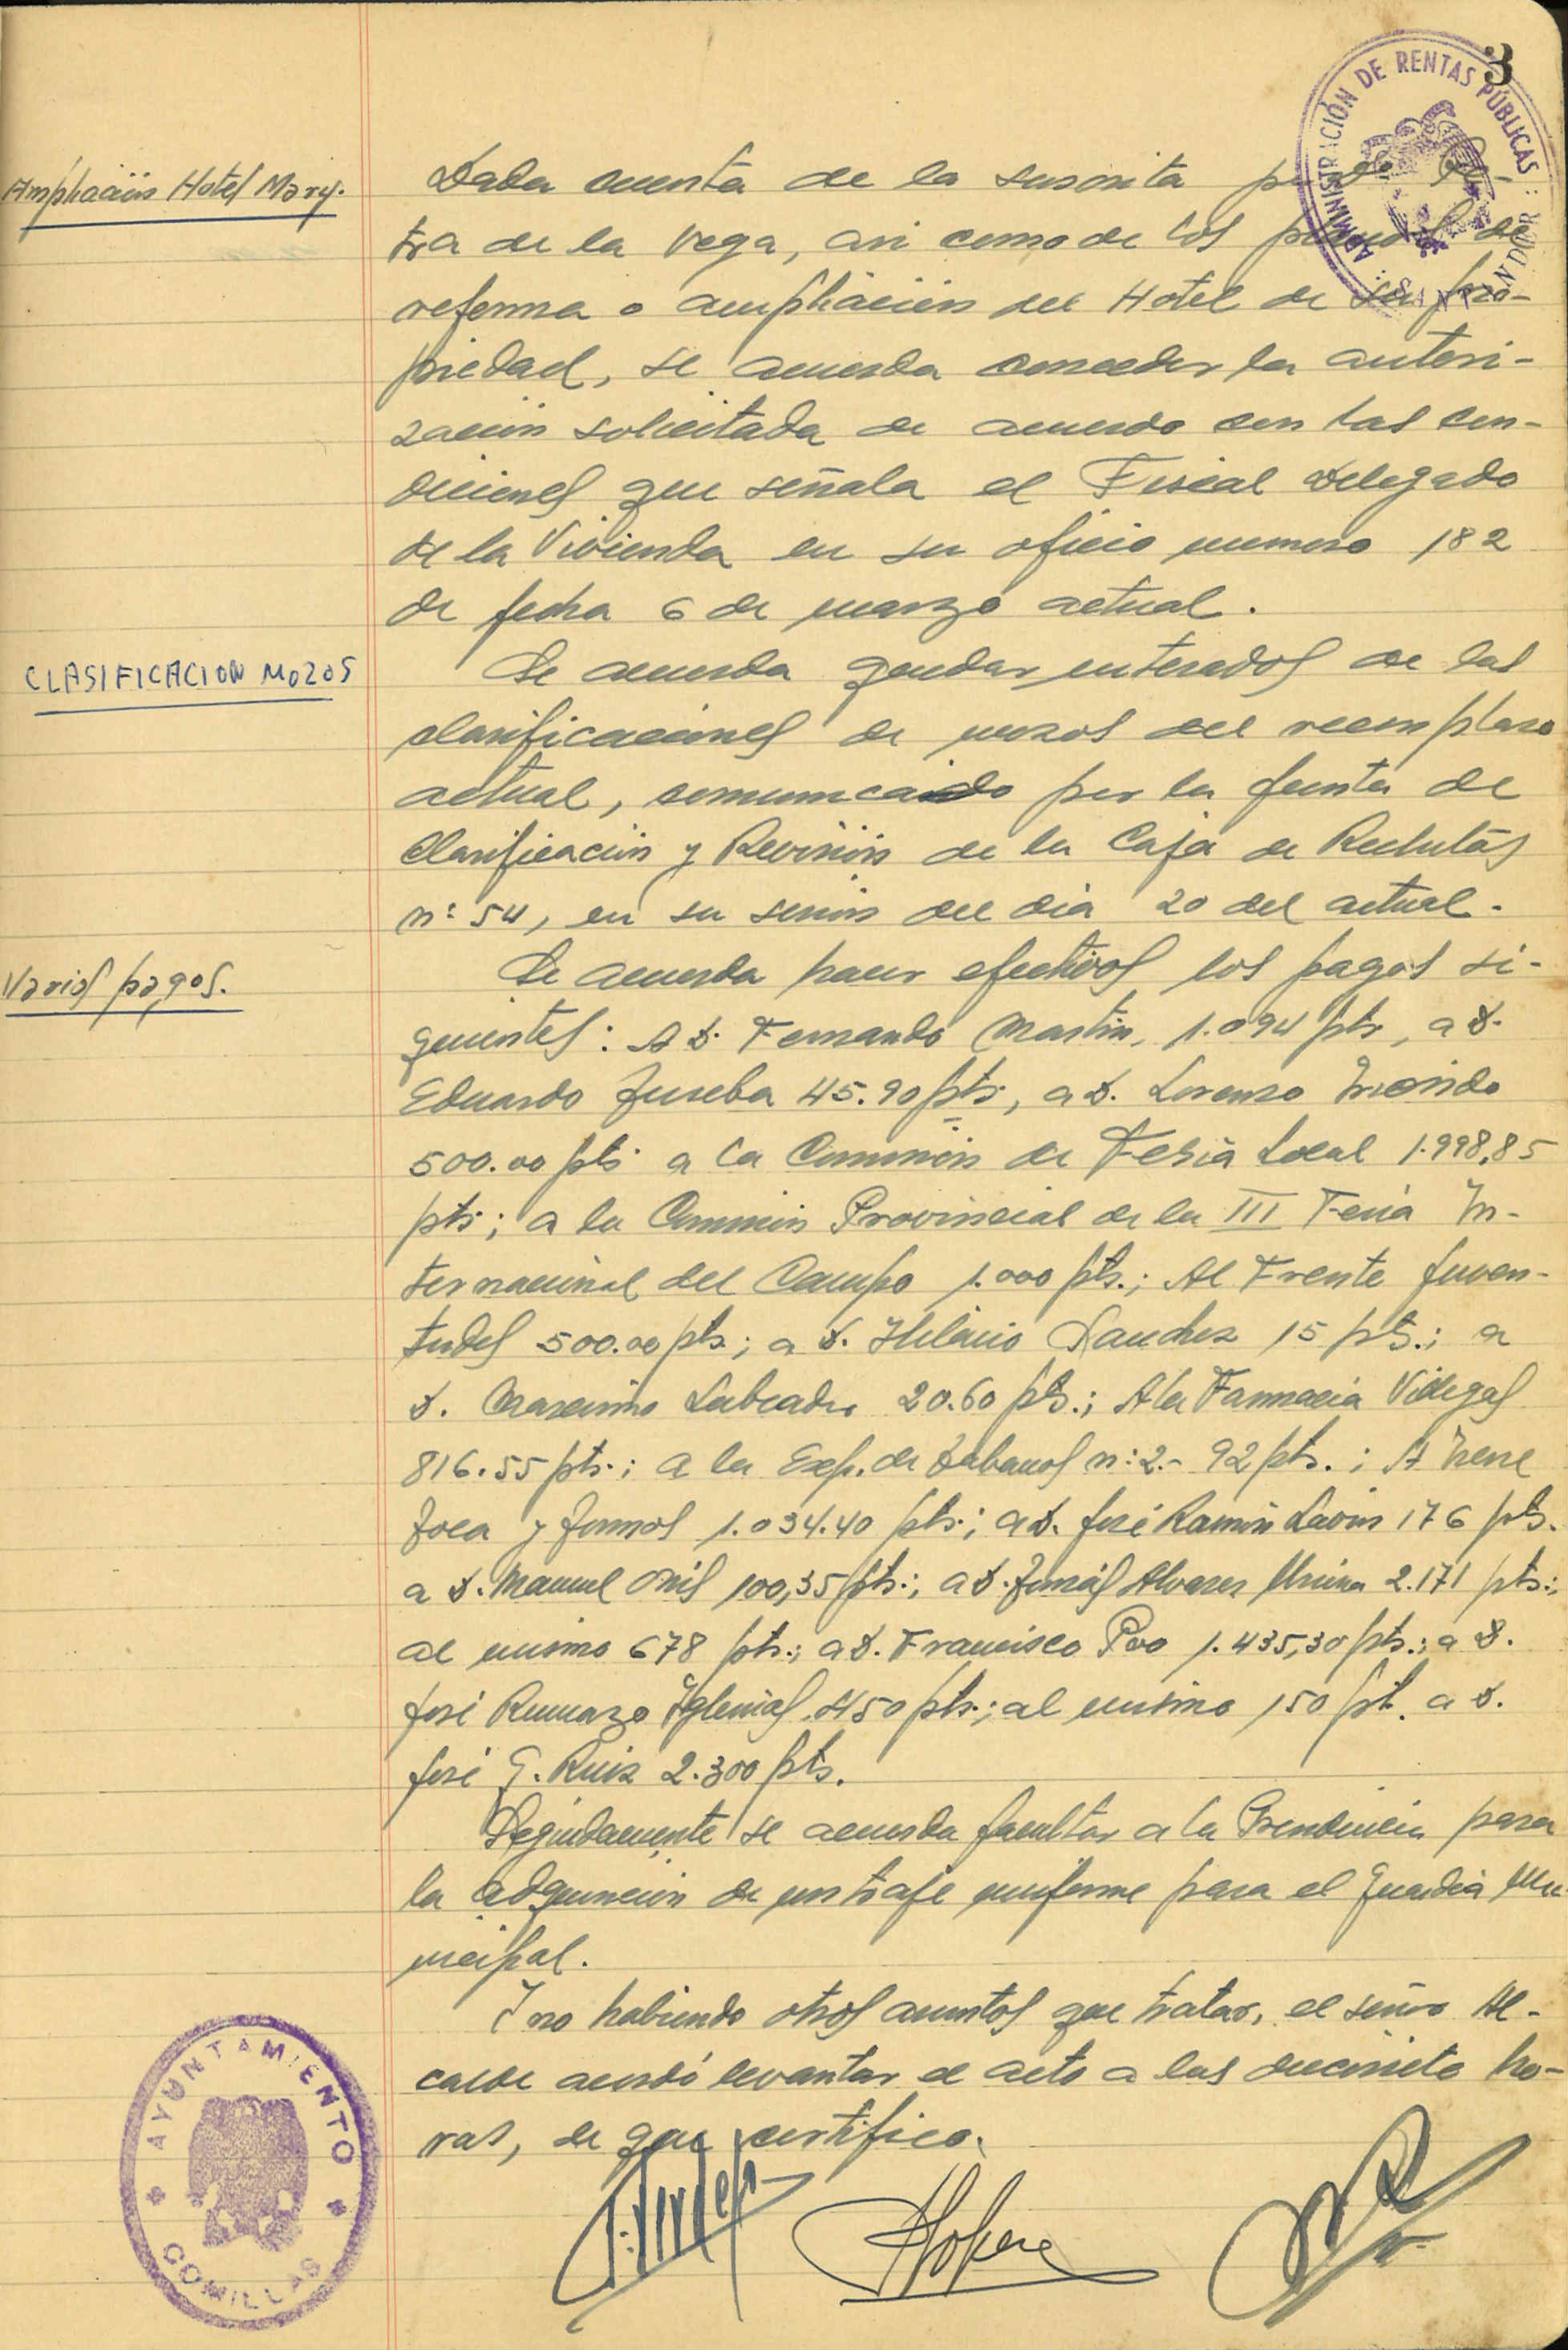 3
ADMINISTRACIÓN DE RENTAS PÚBLICAS
SANTANDER
Ampliación Hotel Mary.
Dada cuenta de la suscrita por Dª Pe-
tra de la Vega, asi como de los planos de
reforma o ampliación del Hotel de su pro-
piedad, se acuerda conceder la autori-
zación solicitada de acuerdo con las con-
diciones que señala el Fiscal Delegado
de la Vivienda en su oficio numero 182
de fecha 6 de marzo actual.
CLASIFICACION MOZOS
Se acuerda quedar enterados de las
clasificaciones de mozos del reemplazo
actual, comunicado por la Junta de
Clasificación y Revisión de la Caja de Reclutas
nº 54, en su sesión del dia 20 del actual.
Varios pagos.
Se acuerda hacer efectivos los pagos si-
guientes: A D. Fernando Martin, 1.094 pts, a D.
Eduardo 45.90 pts, a D. Lorenzo
500.00 pts a la Comisión de Feria Local 1.998,85
pts; a la Comisión Provincial de la III Feria In-
ternacional del Campo 1.000 pts.; Al Frente Juven-
tudes 500.00 pts; a D. Hilario Sanchez 15 pts.; a
D. Maximino Labrador 20.60 pts.; A la Farmacia Villegas
816.55 pts.; a la Exp. de Tabacos nº 2.- 92 pts.; A Irene
1.034.40 pts.; a D. José Ramón Lavin 176 pts.
a D. Manuel 100,35 pts.; a D. Tomás Alvarez 2.171 pts.;
al mismo 678 pts.; a D. Francisco Poo 1.435,30 pts.; a D.
José Iglesias 450 pts.; al mismo 150 pt. a D.
José G. Ruiz 2.300 pts.
Seguidamente se acuerda facultar a la Presidencia para
la adquisición de un traje uniforme para el Guardia Mu-
nicipal.
Y no habiendo otros asuntos que tratar, el señor Al-
calde acordó levantar el acto a las diecisiete ho-
ras, de que certifico.
AYUNTAMIENTO
COMILLAS